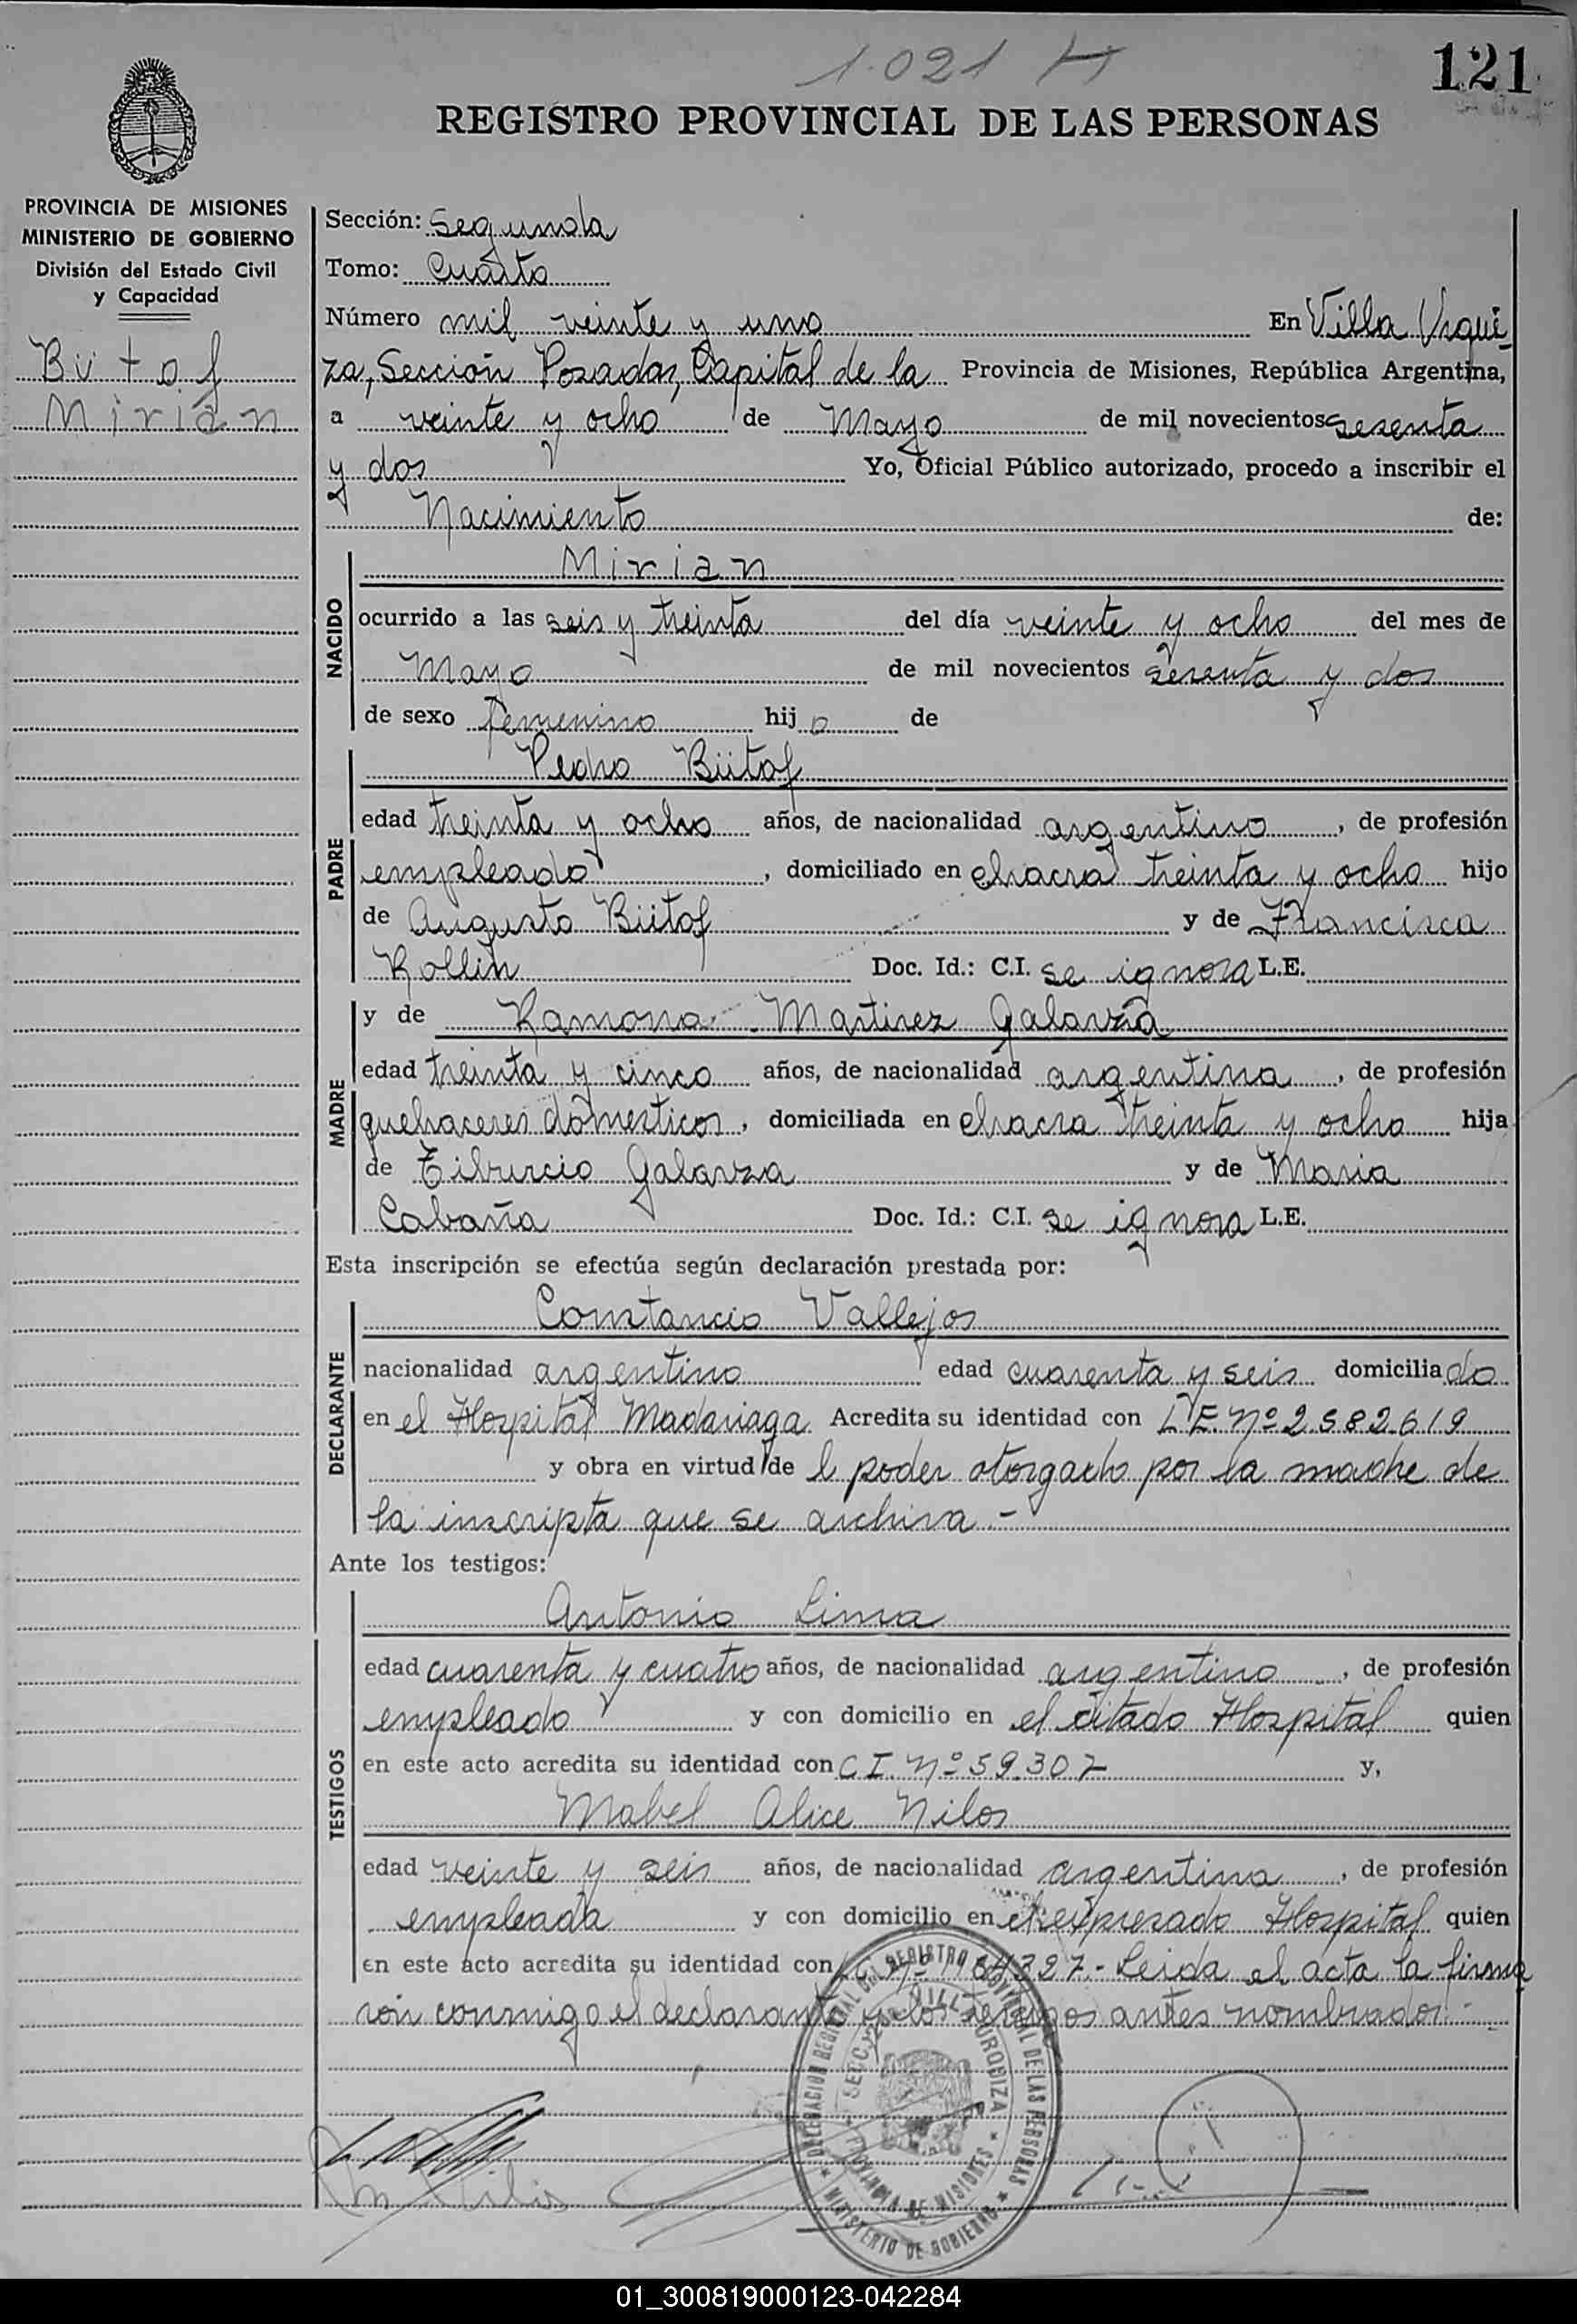 1.021 H
121
REGISTRO PROVINCIAL DE LAS PERSONAS
PROVINCIA DE MISIONES
MINISTERIO DE GOBIERNO
División del Estado Civil
y Capacidad
Bütof
Mirian
Sección: Segunda
Tomo: Cuarto
Número mil veinte y uno En Villa Urqui-
za, Sección Posadas, Capital de la Provincia de Misiones, República Argentina,
a veinte y ocho de Mayo de mil novecientos sesenta
y dos Yo, Oficial Público autorizado, procedo a inscribir el
Nacimiento de:
NACIDO
Mirian
ocurrido a las seis y treinta del día veinte y ocho del mes de
Mayo de mil novecientos sesenta y dos
de sexo femenino hijo de
PADRE
Pedro Bütof
edad treinta y ocho años, de nacionalidad argentino, de profesión
empleado, domiciliado en chacra treinta y ocho hijo
de Augusto Bütof y de Francisca
Rollin Doc. Id.: C.I. se ignora L.E.
MADRE
y de Ramona Martinez Galarza
edad treinta y cinco años, de nacionalidad argentina, de profesión
quehaceres domesticos, domiciliada en chacra treinta y ocho hija
de Tiburcio Galarza y de Maria
Cabaña Doc. Id.: C.I. se ignora L.E.
Esta inscripción se efectúa según declaración prestada por:
DECLARANTE
Constancio Vallejos
nacionalidad argentino edad cuarenta y seis domiciliado
en el Hospital Madariaga Acredita su identidad con L.E. Nº 2.582.619
y obra en virtud de l poder otorgado por la madre de
la inscripta que se archiva.-
Ante los testigos:
TESTIGOS
Antonio Lima
edad cuarenta y cuatro años, de nacionalidad argentino, de profesión
empleado y con domicilio en el citado Hospital quien
en este acto acredita su identidad con C.I. Nº 59.307 y,
Mabel Alice Nilos
edad veinte y seis años, de nacionalidad argentina, de profesión
empleada y con domicilio en el expresado Hospital quien
en este acto acredita su identidad con Leida el acta la firma
rón conmigo el declarante y los testigos antes nombrados.-
DELEGACION REGIONAL DEL REGISTRO PROVINCIAL DE LAS PERSONAS
VILLA URQUIZA
PROVINCIA DE MISIONES
MINISTERIO DE GOBIERNO
01_300819000123-042284